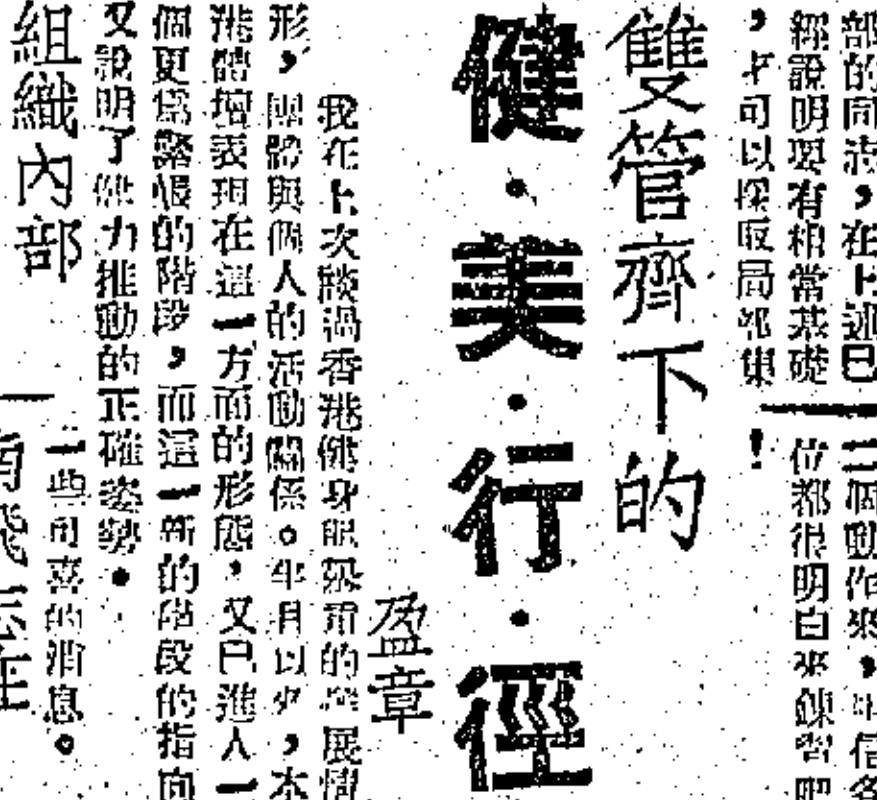 部的同志，在上述已
經說明要有相當基礎
，才可以採取局部集
二個動作來，
位都很明白來鍊習肥
！
雙管齊下的
健・美・行・徑
盈章
我在上次談過香港健身
的發展情
形，團體與個人的活動關係。年月以來，本
港體壇表現在這一方面的形態，又已進入一
個更為緊張的階段，而這一新的階段的指向
又說明了健力推動的正確姿勢。
一些可喜的消息。
組織內部